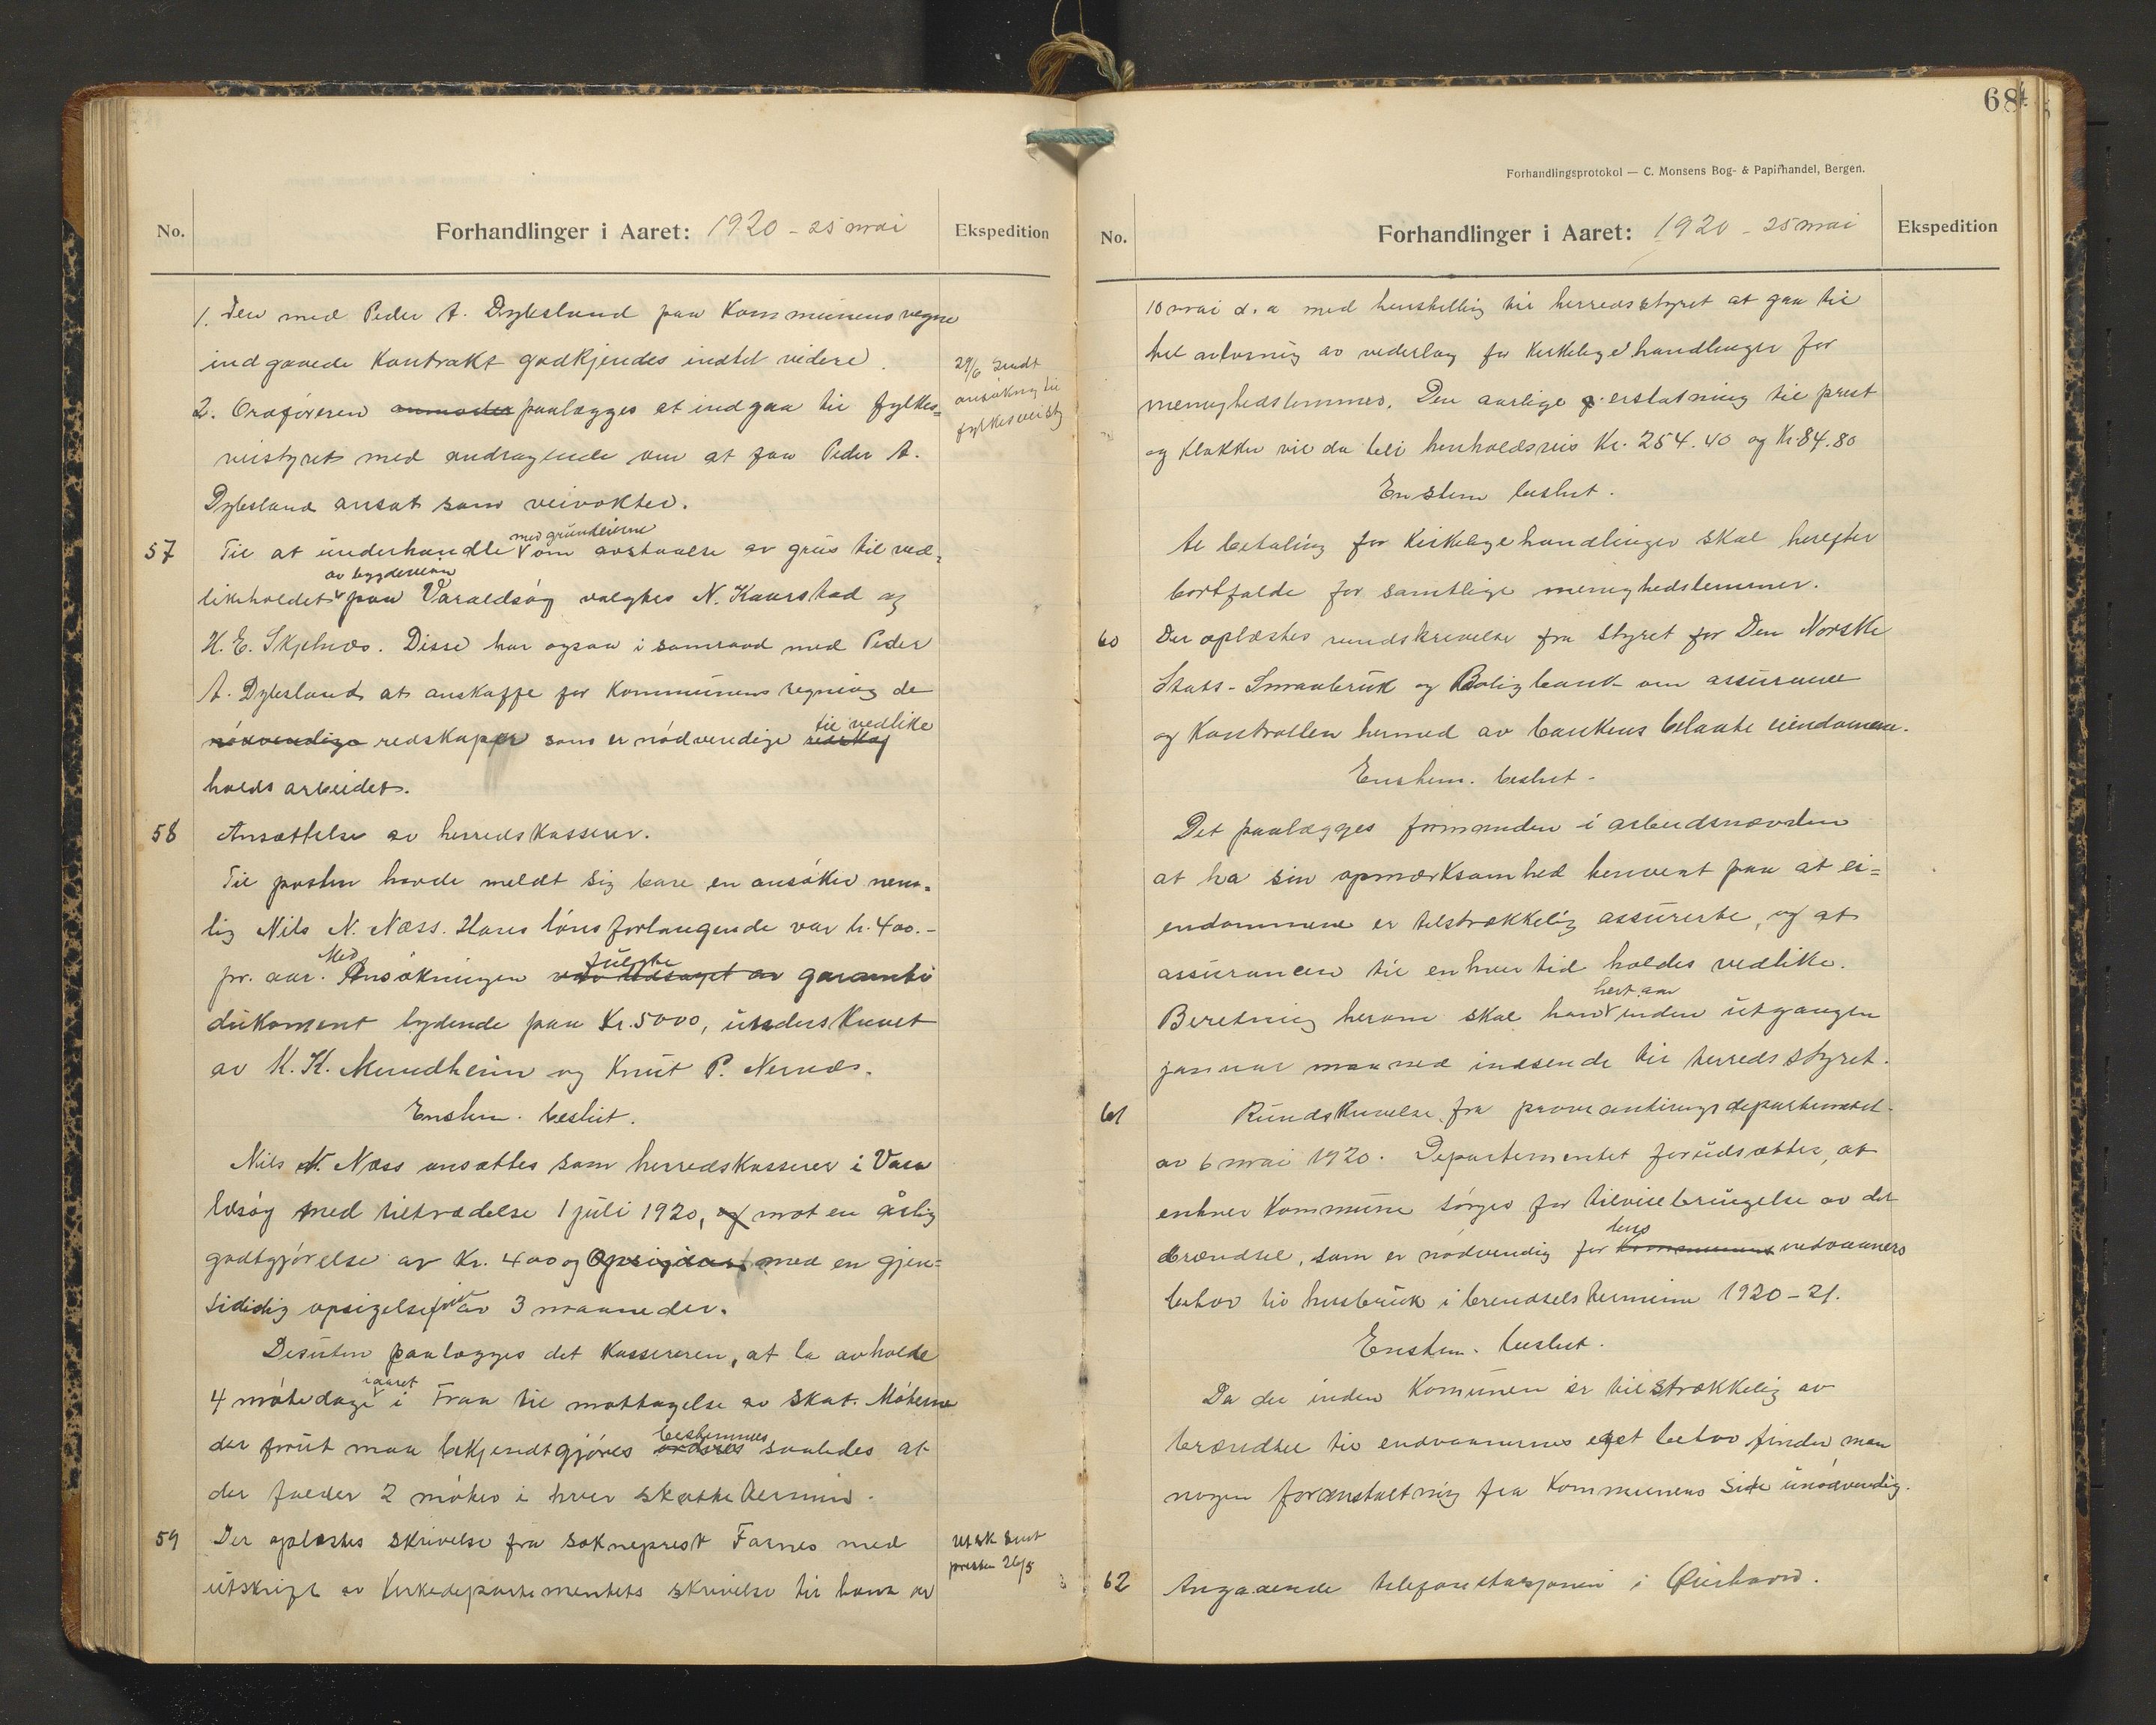 No.
Forhandlinger i Aaret: 1920 - 25 mai
Ekspedition
1. Den med Peder A. Dybsland paa Kommunens vegne
indgaaede Kontrakt godkjendes indtil videre.
29/6 Sendt
ansökning til
fylkesveist
2. Ordföreren anmodes paalægges at indgaa til fylkes=
veistyret med andragende om at faa Peder A.
Dybsland ansat som veivokter.
57 Til at underhandle med grundeierne om avstaaelse av grus til ved=
likeholdet av bygdeveien paa Varaldsøy valgtes N. Kaarstad og
H. E. Skjelnæs. Disse har ogsaa i samraad med Peder
A. Dybsland at anskaffe for Kommunens regning de
nødvendige redskaper som er nödvendige redskap til vedlike
holds arbeidet.
58 Ansættelse av herredskasserer.
Til posten havde meldt sig bare en ansöker nem=
lig Nils N. Næss. Hans lönsforlangende var kr. 400.-
pr. aar. Med Ansökningen var ledsaget av fulgte garanti
dukoment lydende paa Kr. 5000, underskrevet
av K. K. Mundheim og Knut P. Nernæs.
Enstem. beslut.
Nils N. Næss ansættes som herredskasserer i Vara
ldsöy med tiltrædelse 1 juli 1920, og mot en årlig
godtgjörelse av Kr. 400 og Opsigdes med en gjen=
sididig opsigelsefrist av 3 maaneder.
Desuten paalægges det Kassereren, at la avholde
4 mötedage i aaret i Traa til mottagelse av skat. Möterne
der forut maa bekjendtgjöres ordnes bestemmes saaledes at
der falder 2 möter i hver skattetermin.
59 Der oplæstes skrivelse fra sokneprest Farnes med
utskrift av Kirkedepartementets skrivelse til ham av
utsk sendt
presten 26/5
68
Forhandlingsprotokol — C. Monsens Bog- & Papirhandel, Bergen.
No.
Forhandlinger i Aaret: 1920 - 25 mai
Ekspedition
10 mai d. a med henstilling til herredsstyret at gaa til
hel avløsnig av vederlag for Kirkelige handlinger for
menighedslemmer. Den aarlige erstatning til prest
og klokker vil da bli henholdsvis Kr. 254.40 og Kr. 84.80
Enstem beslut.
At betaling for Kirkelige handlinger skal herefter
bortfalde for samtlige menighedslemmer.
60 Der oplæstes rundskrivelse fra styret for Den Norske
Stats-Smaabruk og Boligbank om assurance
og Kontrollen hermed av bankens belaante eiendomene.
Enstem. beslut.
Det paalægges formanden i arbeidsnævnden
at ha sin opmærksomhed henvent paa at ei=
endommene er tilstrækkelig assurerte, og at
assurancen til enhver tid holdes vedlike.
Beretning herom skal han hvert aar inden utgangen
januar maaned indsende til herredsstyret.
61 Rundskrivelse fra provianteringsdepartementet
av 6 mai 1920. Departementet forudsætter, at
enhver Kommune sörger for tilveiebringelse av det
brændsel, som er nödvendig for Kommunens dens indvaaners
behov til husbruk i brendselsterminen 1920-21.
Enstem. beslut.
Da der inden Komunen er tilstrækkelig av
brændsel til endvaanernes eget behov finder man
nogen foranstaltning fra Kommunens side unödvendig.
62 Angaaende telefonstasjonen i Øierhavn.